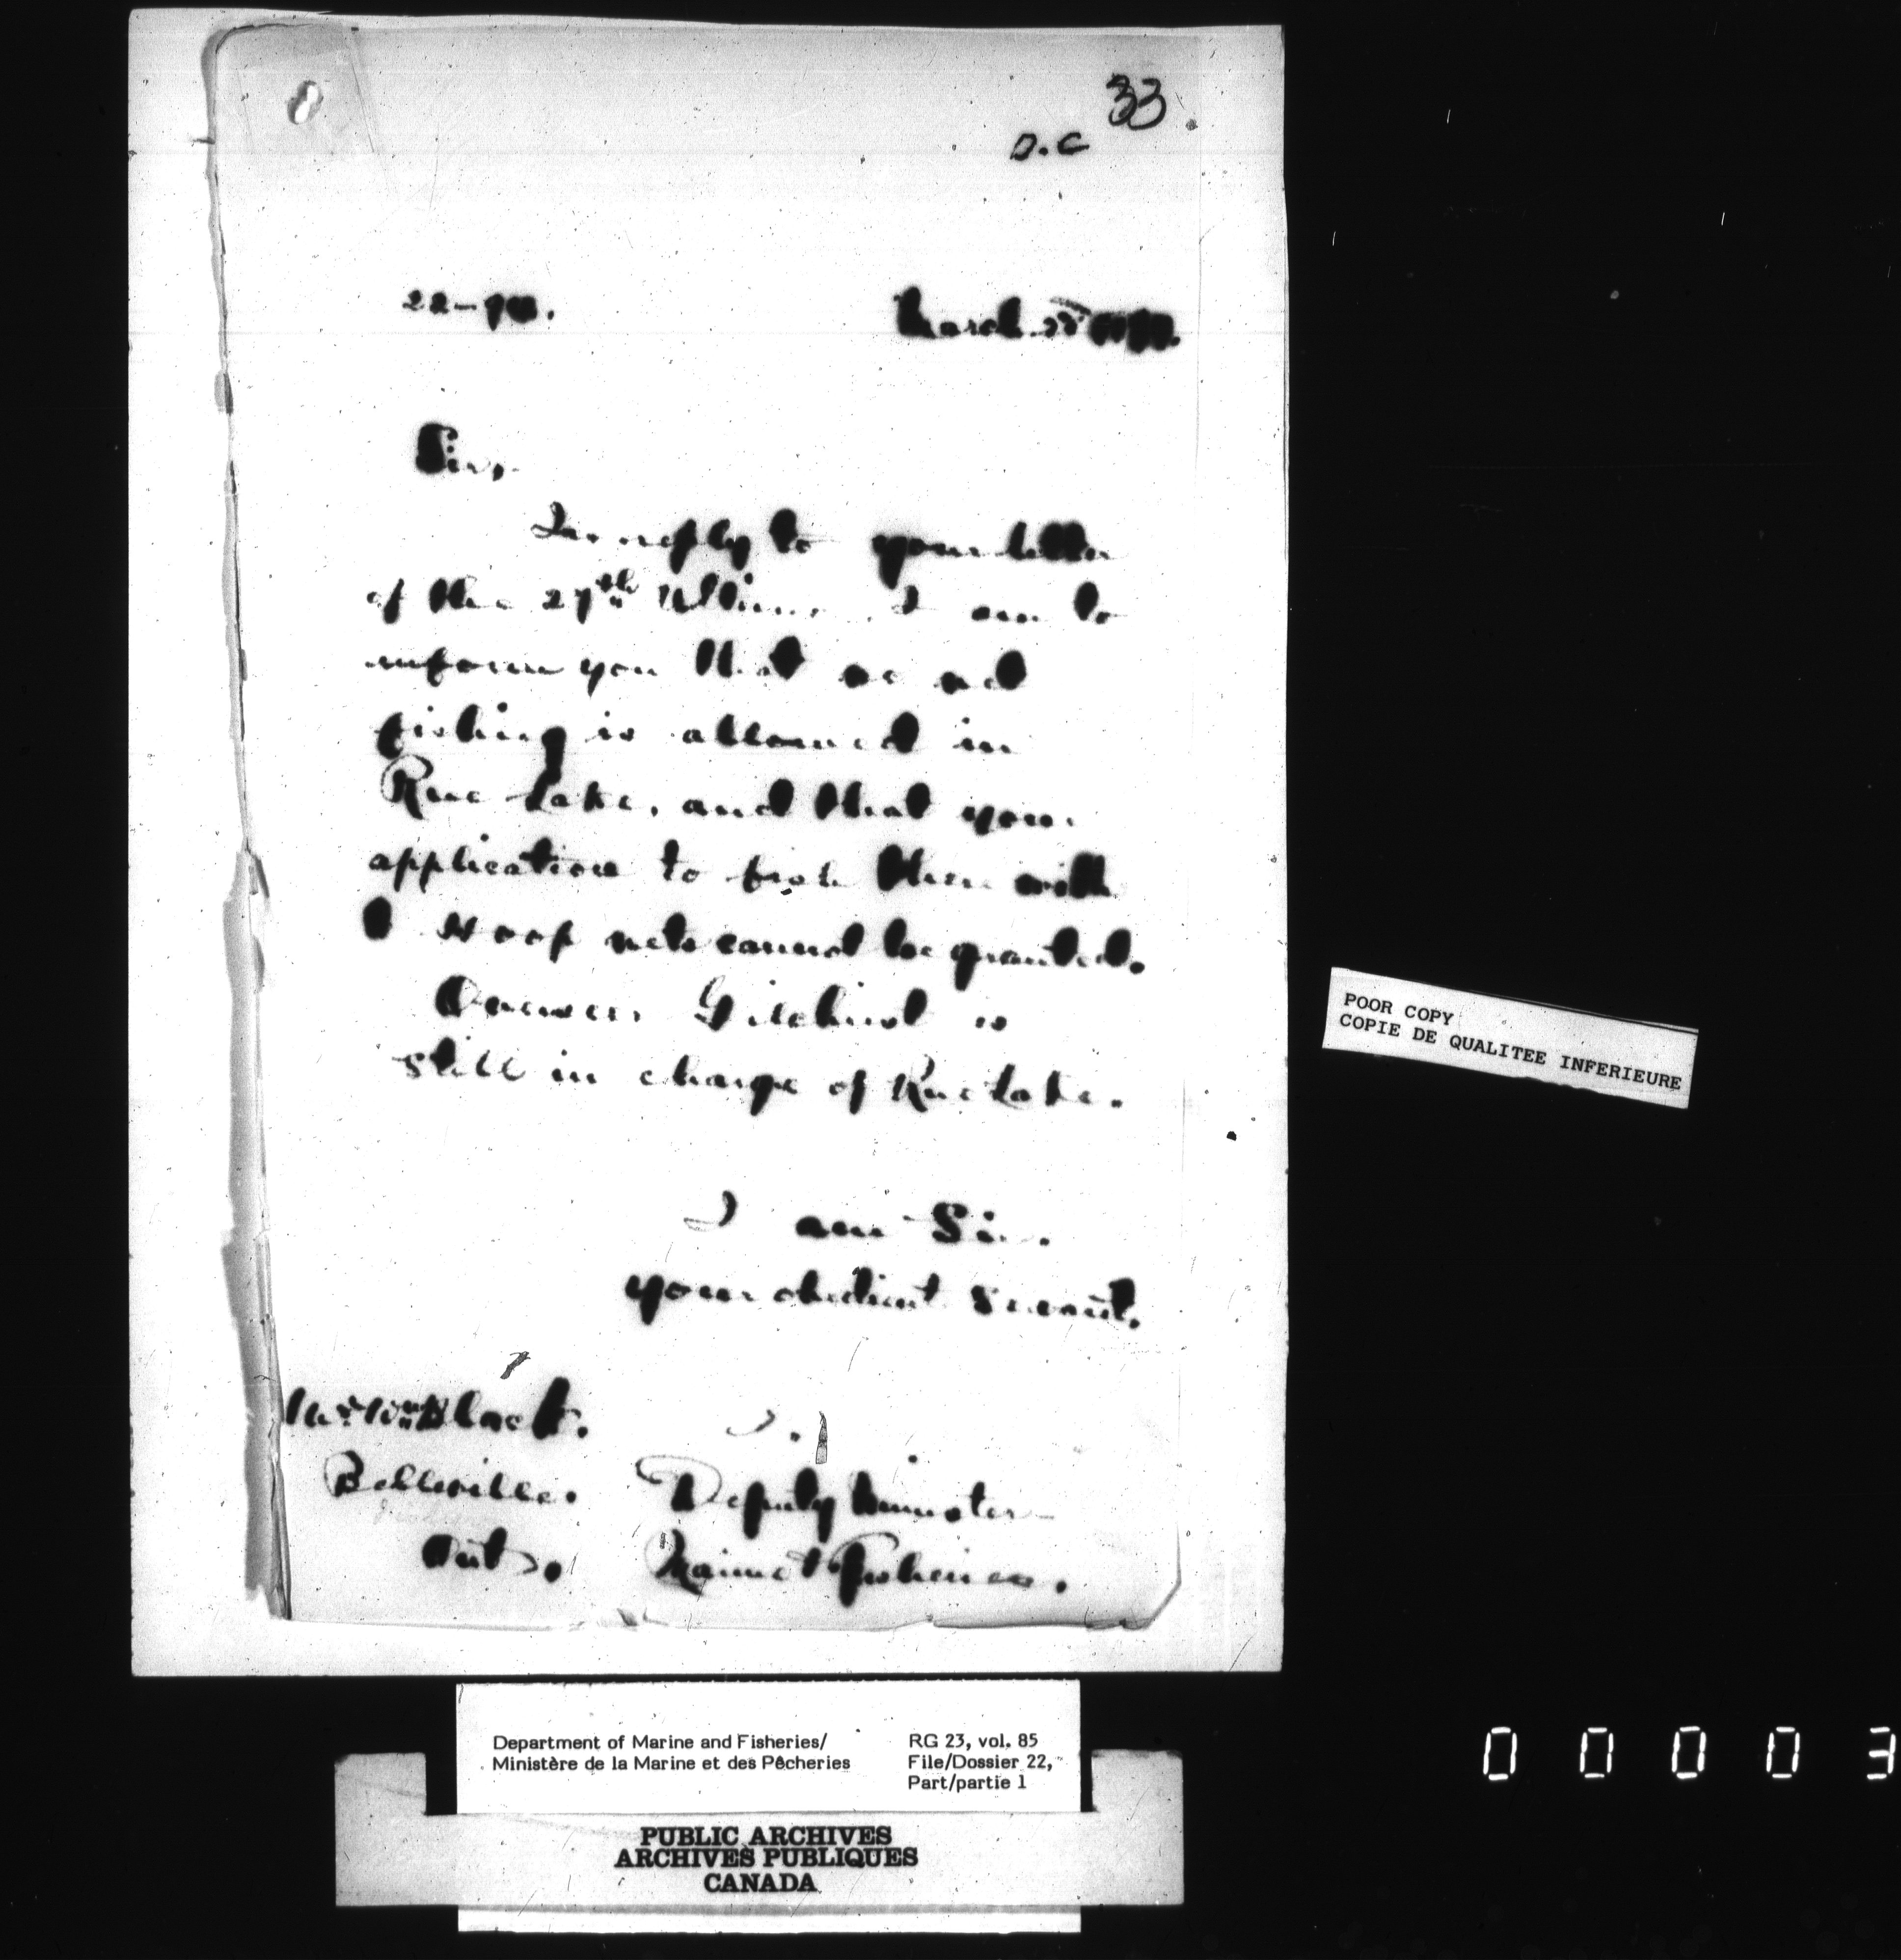 33
D.C
22-90.
March
Sir,
In reply to your letter
of the 27th Ultimo, I am to
inform you that no net
fishing is allowed in
Rice Lake, and that your
application to fish there with
Hoop nets cannot be granted.
Overseer Gilchrist is
still in charge of Rice Lake.
I am Sir.
your obedient Servant.
Mr. Wm Black.
Belleville.
Ont.
Deputy Minister
Marine & Fisheries.
POOR COPY
COPIE DE QUALITEE INFERIEURE
Department of Marine and Fisheries/
Ministère de la Marine et des Pêcheries
RG 23, vol. 85
File/Dossier 22,
Part/partie 1
PUBLIC ARCHIVES
ARCHIVES PUBLIQUES
CANADA
0 0 0 0 3